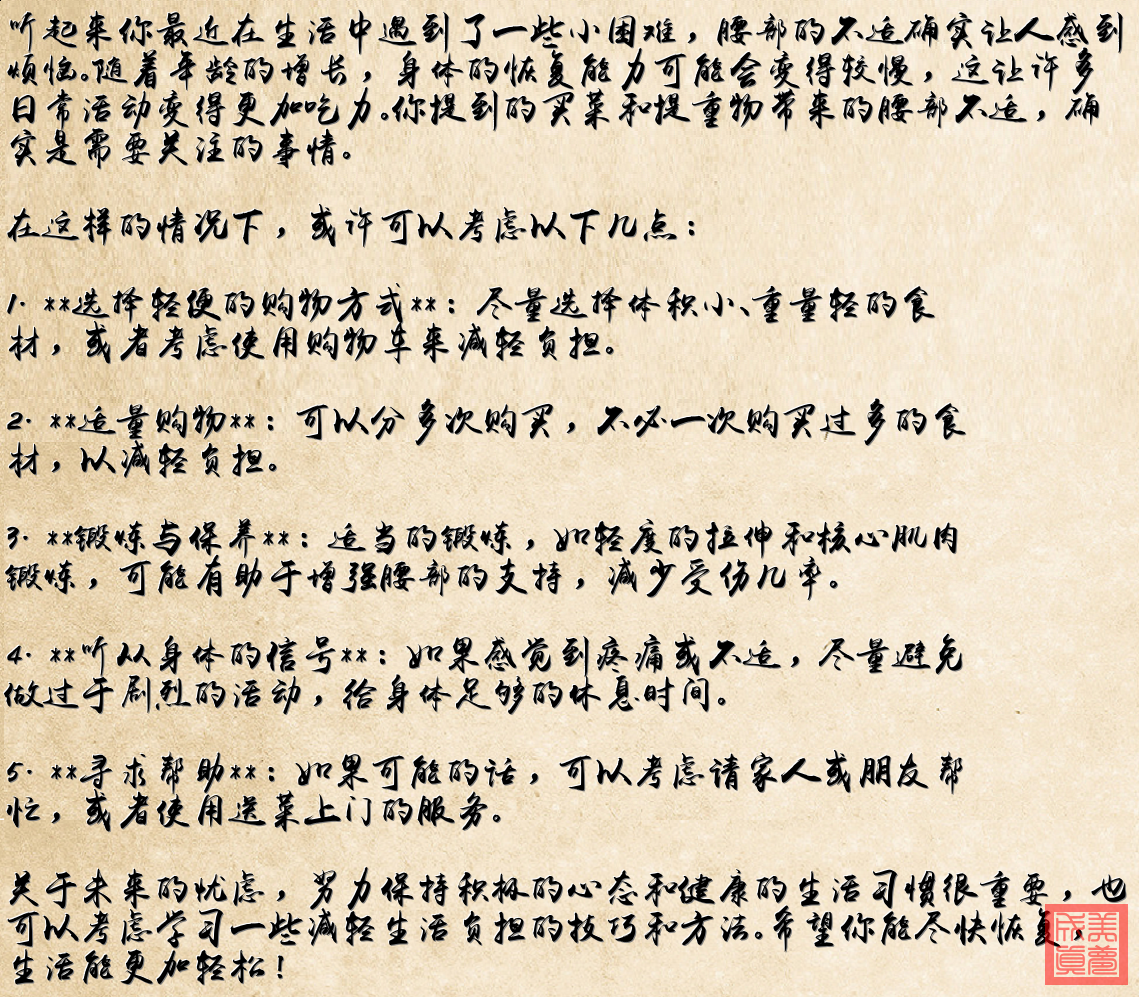 听起来你最近在生活中遇到了一些小困难，腰部的不适确实让人感到
烦恼。随着年龄的增长，身体的恢复能力可能会变得较慢，这让许多
日常活动变得更加吃力。你提到的买菜和提重物带来的腰部不适，确
实是需要关注的事情。
在这样的情况下，或许可以考虑以下几点：
1. **选择轻便的购物方式**：尽量选择体积小、重量轻的食
材，或者考虑使用购物车来减轻负担。
2. **适量购物**：可以分多次购买，不必一次购买过多的食
材，以减轻负担。
3. **锻炼与保养**：适当的锻炼，如轻度的拉伸和核心肌肉
锻炼，可能有助于增强腰部的支持，减少受伤几率。
4. **听从身体的信号**：如果感觉到疼痛或不适，尽量避免
做过于剧烈的活动，给身体足够的休息时间。
5. **寻求帮助**：如果可能的话，可以考虑请家人或朋友帮
忙，或者使用送菜上门的服务。
关于未来的忧虑，努力保持积极的心态和健康的生活习惯很重要，也
可以考虑学习一些减轻生活负担的技巧和方法。希望你能尽快恢复，
生活能更加轻松！
美梦成真